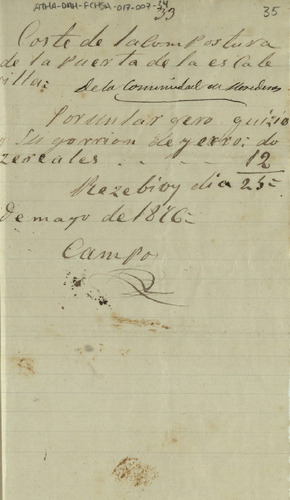 ATHA-DAH-FCHSA-017-007-34
33
35
Coste de la Compostura
de la puerta de la escale
rilla:
De la Comunidad de
Por
y su gorrion de yerro: do
ze reales . . . 12
Rezebi oy dia 25 =
de mayo de 1876 =
Campo